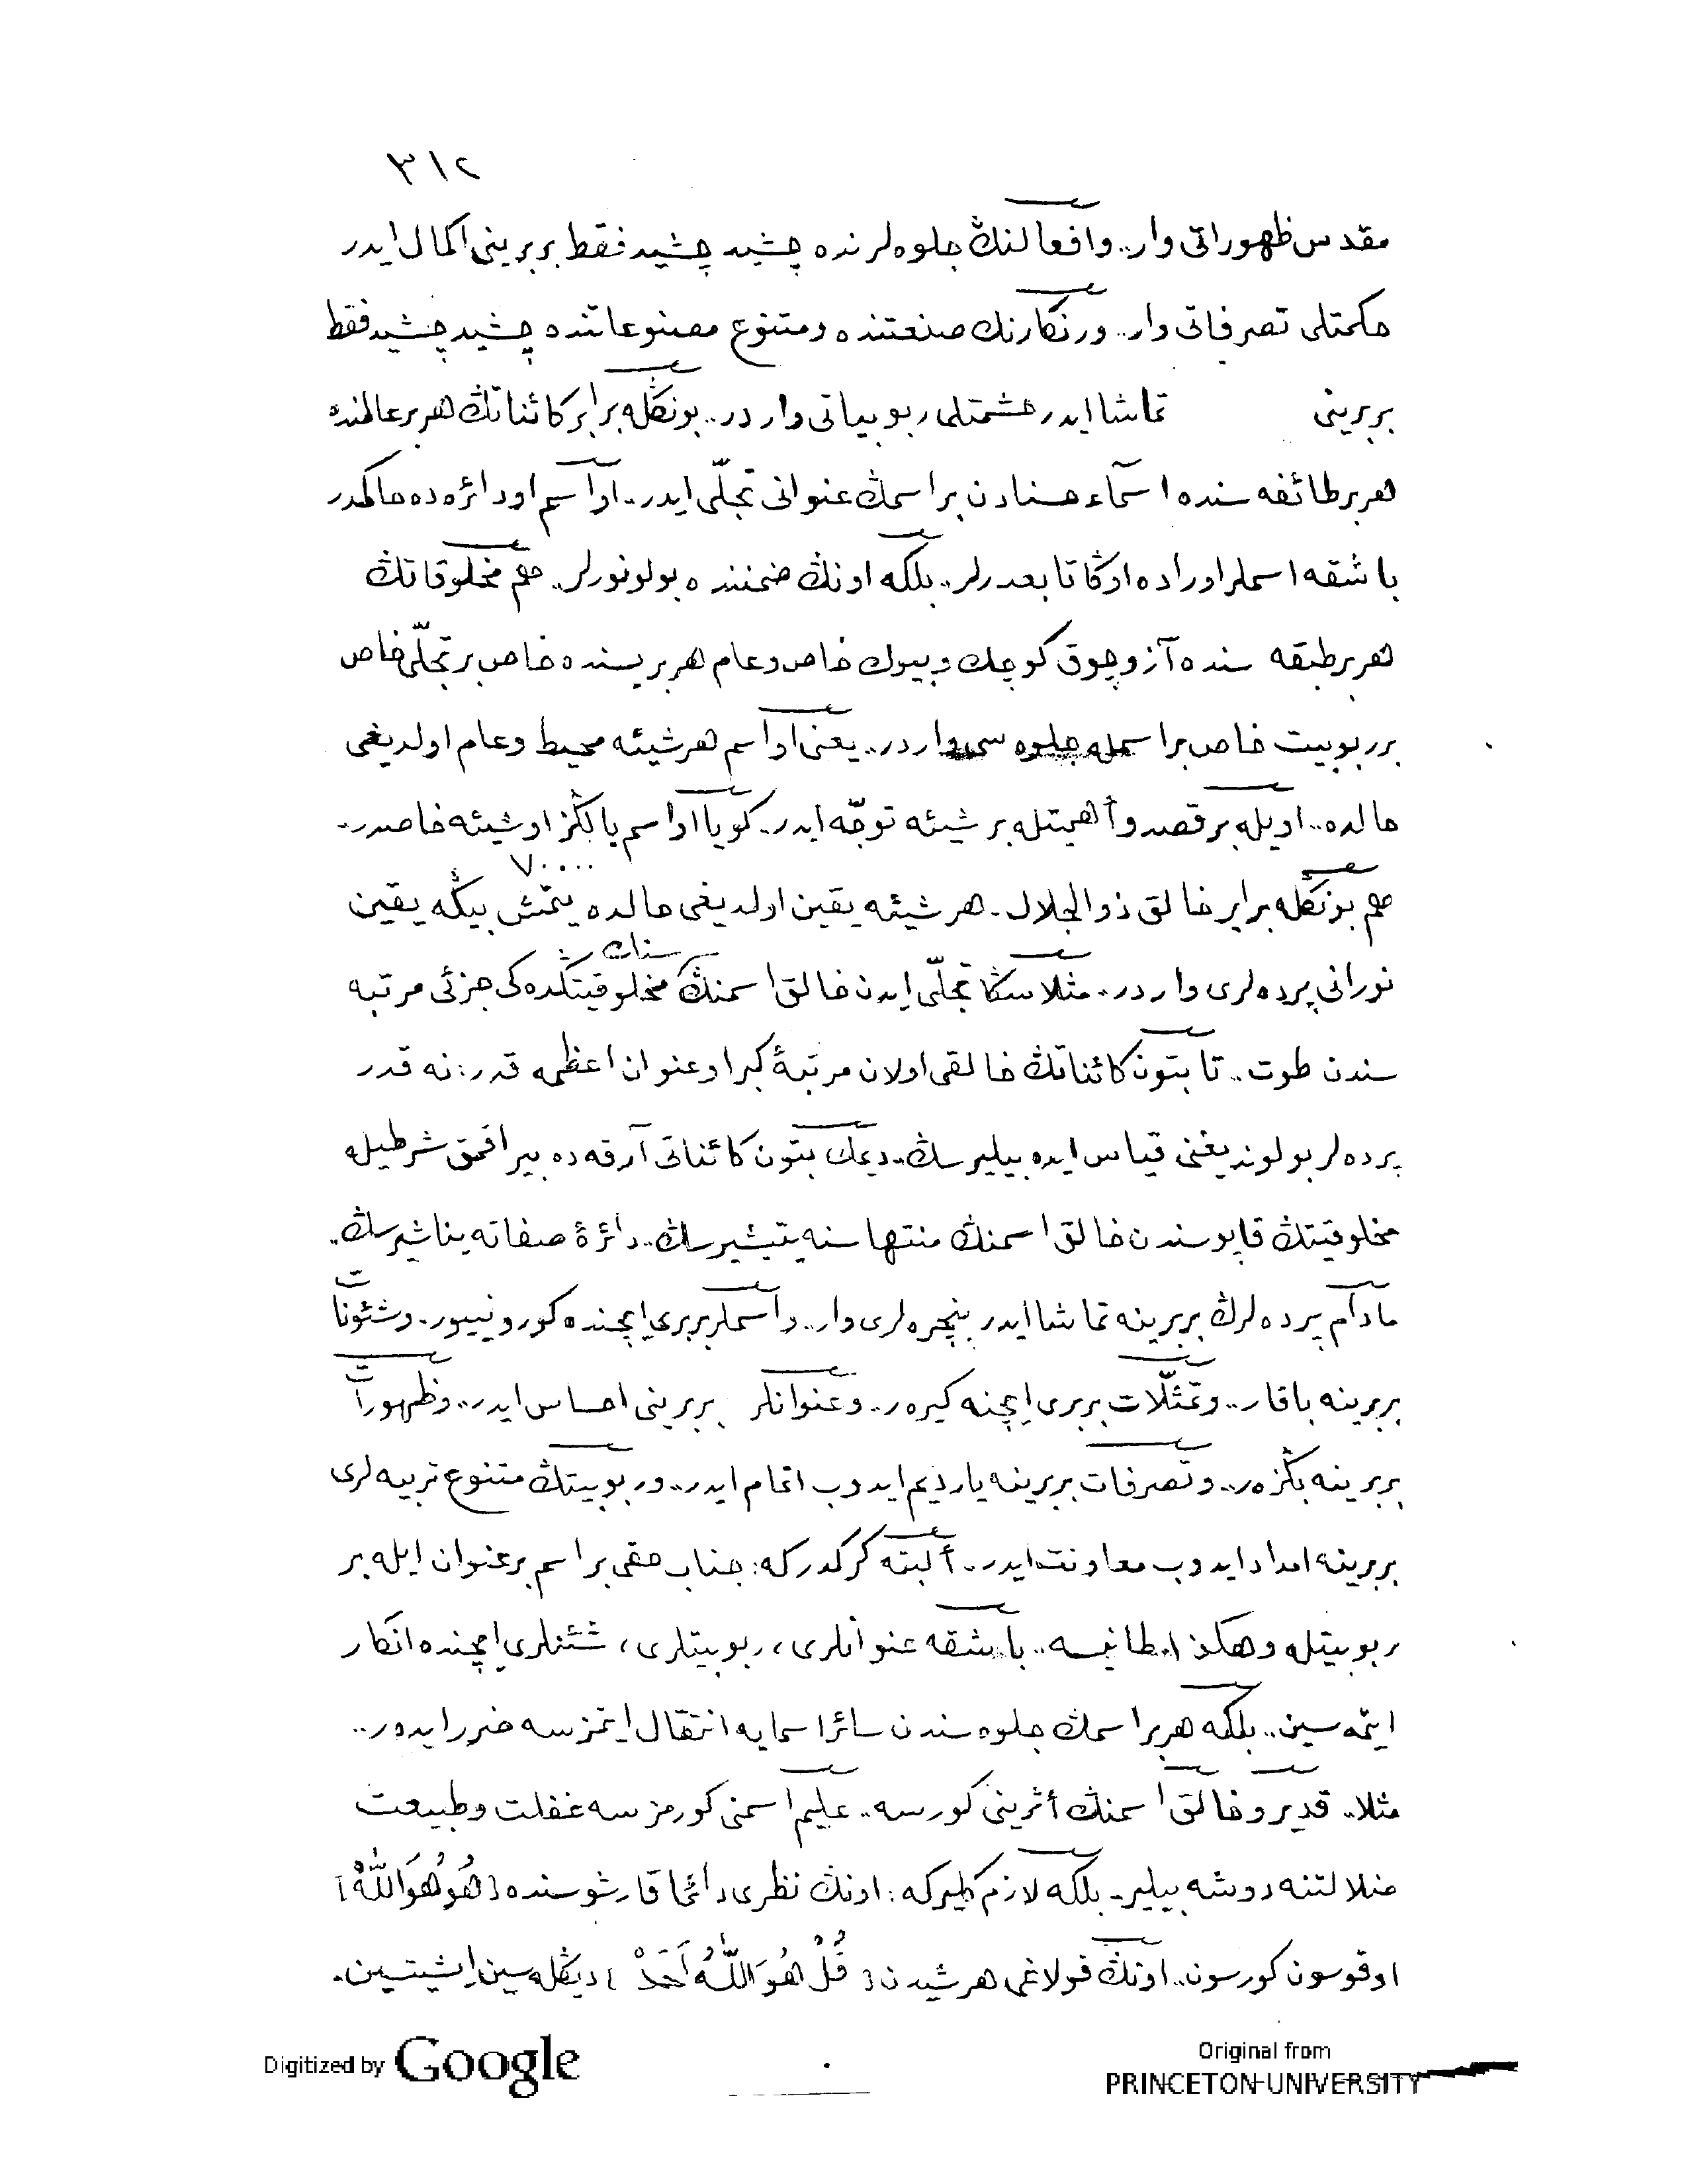 ٣١٢
مقدس ظهوراتی وار.. وافعالنڭ جلوه‌لرنده چشید چشید فقط بربرینی اکمال ایدر
حکمتلی تصرفاتی وار.. ورنکارنك صنعتنده ومتنوع مصنوعاتنده چشید چشید فقط
بربرینی تماشا ایدر حشمتلی ربوبیاتی واردر.. بونكله برابر کائناتڭ هر بر عالمنده
هر بر طائفه سنده اسمآء حسنادن بر اسمڭ عنوانی تجلّی ایدر.. او اسم او دائره ده حاکمدر
باشقه اسملر اوراده اوڭا تابعدرلر.. بلکه اونڭ ضمننده بولونورلر.. هم مخلوقاتڭ
هر بر طبقه سنده آز وچوق کوچك وبیوك خاص وعام هر بریسنده خاص بر تجلّی خاص
بر ربوبیت خاص بر اسمله جلوه سی واردر.. یعنی او اسم هر شیئه محیط وعام اولدیغی
حالده.. اویله بر قصد وأهمیتله بر شیئه توجّه ایدر.. کویا او اسم یالڭز او شیئه خاصدر..
٧٠٠٠٠
هم بونكله برابر خالق ذوالجلال.. هر شیئه یقین اولدیغی حالده یتمش بیڭه یقین
سنك
نورانی پرده‌لری واردر.. مثلا سڭا تجلّی ایدن خالق اسمنڭ مخلوقیتڭده کی جزئی مرتبه
سندن طوت.. تا بتون کائناتڭ خالقی اولان مرتبۀ کبرا وعنوان اعظمه قدر: نه قدر
پرده‌لر بولوندیغنی قیاس ایده بیلیرسڭ.. دیمك بتون کائناتی آرقه ده بیراقمق شرطیله
مخلوقیتڭ قاپوسندن خالق اسمنڭ منتهاسنه یتیشیرسڭ.. دائرۀ صفاته یناشیرسڭ..
مادام پرده‌لرڭ بربرینه تماشا ایدر پنجره‌لری وار.. واسملر بربری ایچنده کورونییور.. وشئونات
بربرینه باقار.. وتمثلّات بربری ایچنه کیره‌ر.. وعنوانلر بربرینی احساس ایدر.. وظهورات
بربرینه بڭزه‌ر.. وتصرفات بربرینه یاردیم ایدوب اتمام ایدر.. وربوبیتڭ متنوع تربیه‌لری
بربرینه امداد ایدوب معاونت ایدر.. ألبته کرکدر که: جناب حقی بر اسم بر عنوان ایله بر
ربوبیتله وهکذا.. طانیسه.. باشقه عنوانلری، ربوبیتلری، شئنلری ایچنده انکار
ایتمه سین.. بلکه هر بر اسمڭ جلوه سندن سائر اسمایه انتقال ایتمزسه ضرر ایده‌ر..
مثلا.. قدیر وخالق اسمنڭ أثرینی کورسه.. علیم اسمنی کورمزسه غفلت وطبیعت
ضلالتنه دوشه بیلیر.. بلکه لازم کلیر که: اونڭ نظری دائما قارشوسنده [ هُوَ هُوَ اللّٰهُ ]
اوقوسون کورسون.. اونڭ قولاغی هر شیدن [ قُلْ هُوَ اللّٰهُ أَحَدْ ] دیڭله سین ایشیتسین.
Digitized by Google
Original from
PRINCETON UNIVERSITY